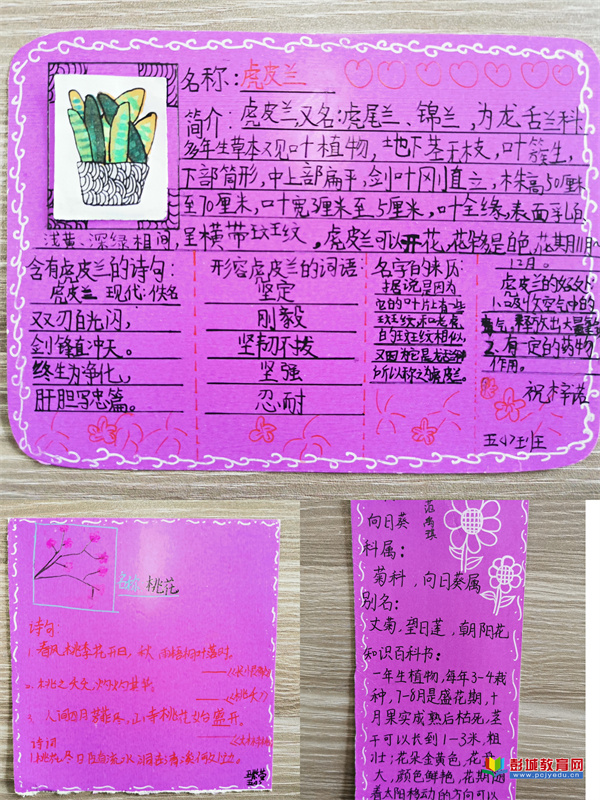 名称:虎皮兰
简介:虎皮兰又名:虎尾兰、锦兰,为龙舌兰科
多年生草本观叶植物,地下茎无枝,叶簇生,
下部筒形,中上部扁平,剑叶刚直立,株高50厘米
至70厘米,叶宽3厘米至5厘米,叶全缘,表面乳白、
浅黄、深绿相间,呈横带斑纹。虎皮兰可以开花,花多是白色,花期11月~
12月。
含有虎皮兰的诗句:
虎皮兰 现代:佚名
双刃白光闪,
剑锋直冲天。
终生为净化,
肝胆写忠篇。
形容虎皮兰的词语:
坚定
刚毅
坚韧不拔
坚强
忍耐
名字的来历:
据说是因为
它的叶片上有些
斑纹和老虎
的斑纹相似,
又因为它是
所以称之为虎皮兰。
虎皮兰的好处
1.吸收空气中的
毒气,释放出大量
2.有一定的药物
作用。
祝梓诺
五小班
名称 桃花
诗句:
1.春风桃李花开日,秋雨梧桐叶落时。
——《长恨歌》
2.桃之夭夭,灼灼其华。
——《桃夭》
3.人间四月芳菲尽,山寺桃花始盛开。
诗词
1.桃花尽日随流水,洞在清溪何处边。
向日葵
科属:
菊科,向日葵属
别名:
丈菊,望日莲,朝阳花
知识百科书:
一年生植物,每年3-4栽
种,7-8月是盛花期,十
月果实成熟后枯死,茎
干可以长到1-3米,粗
壮;花朵金黄色,花
大,颜色鲜艳,花期
着太阳移动的方向可以
彭城教育网
www.pcjyedu.cn